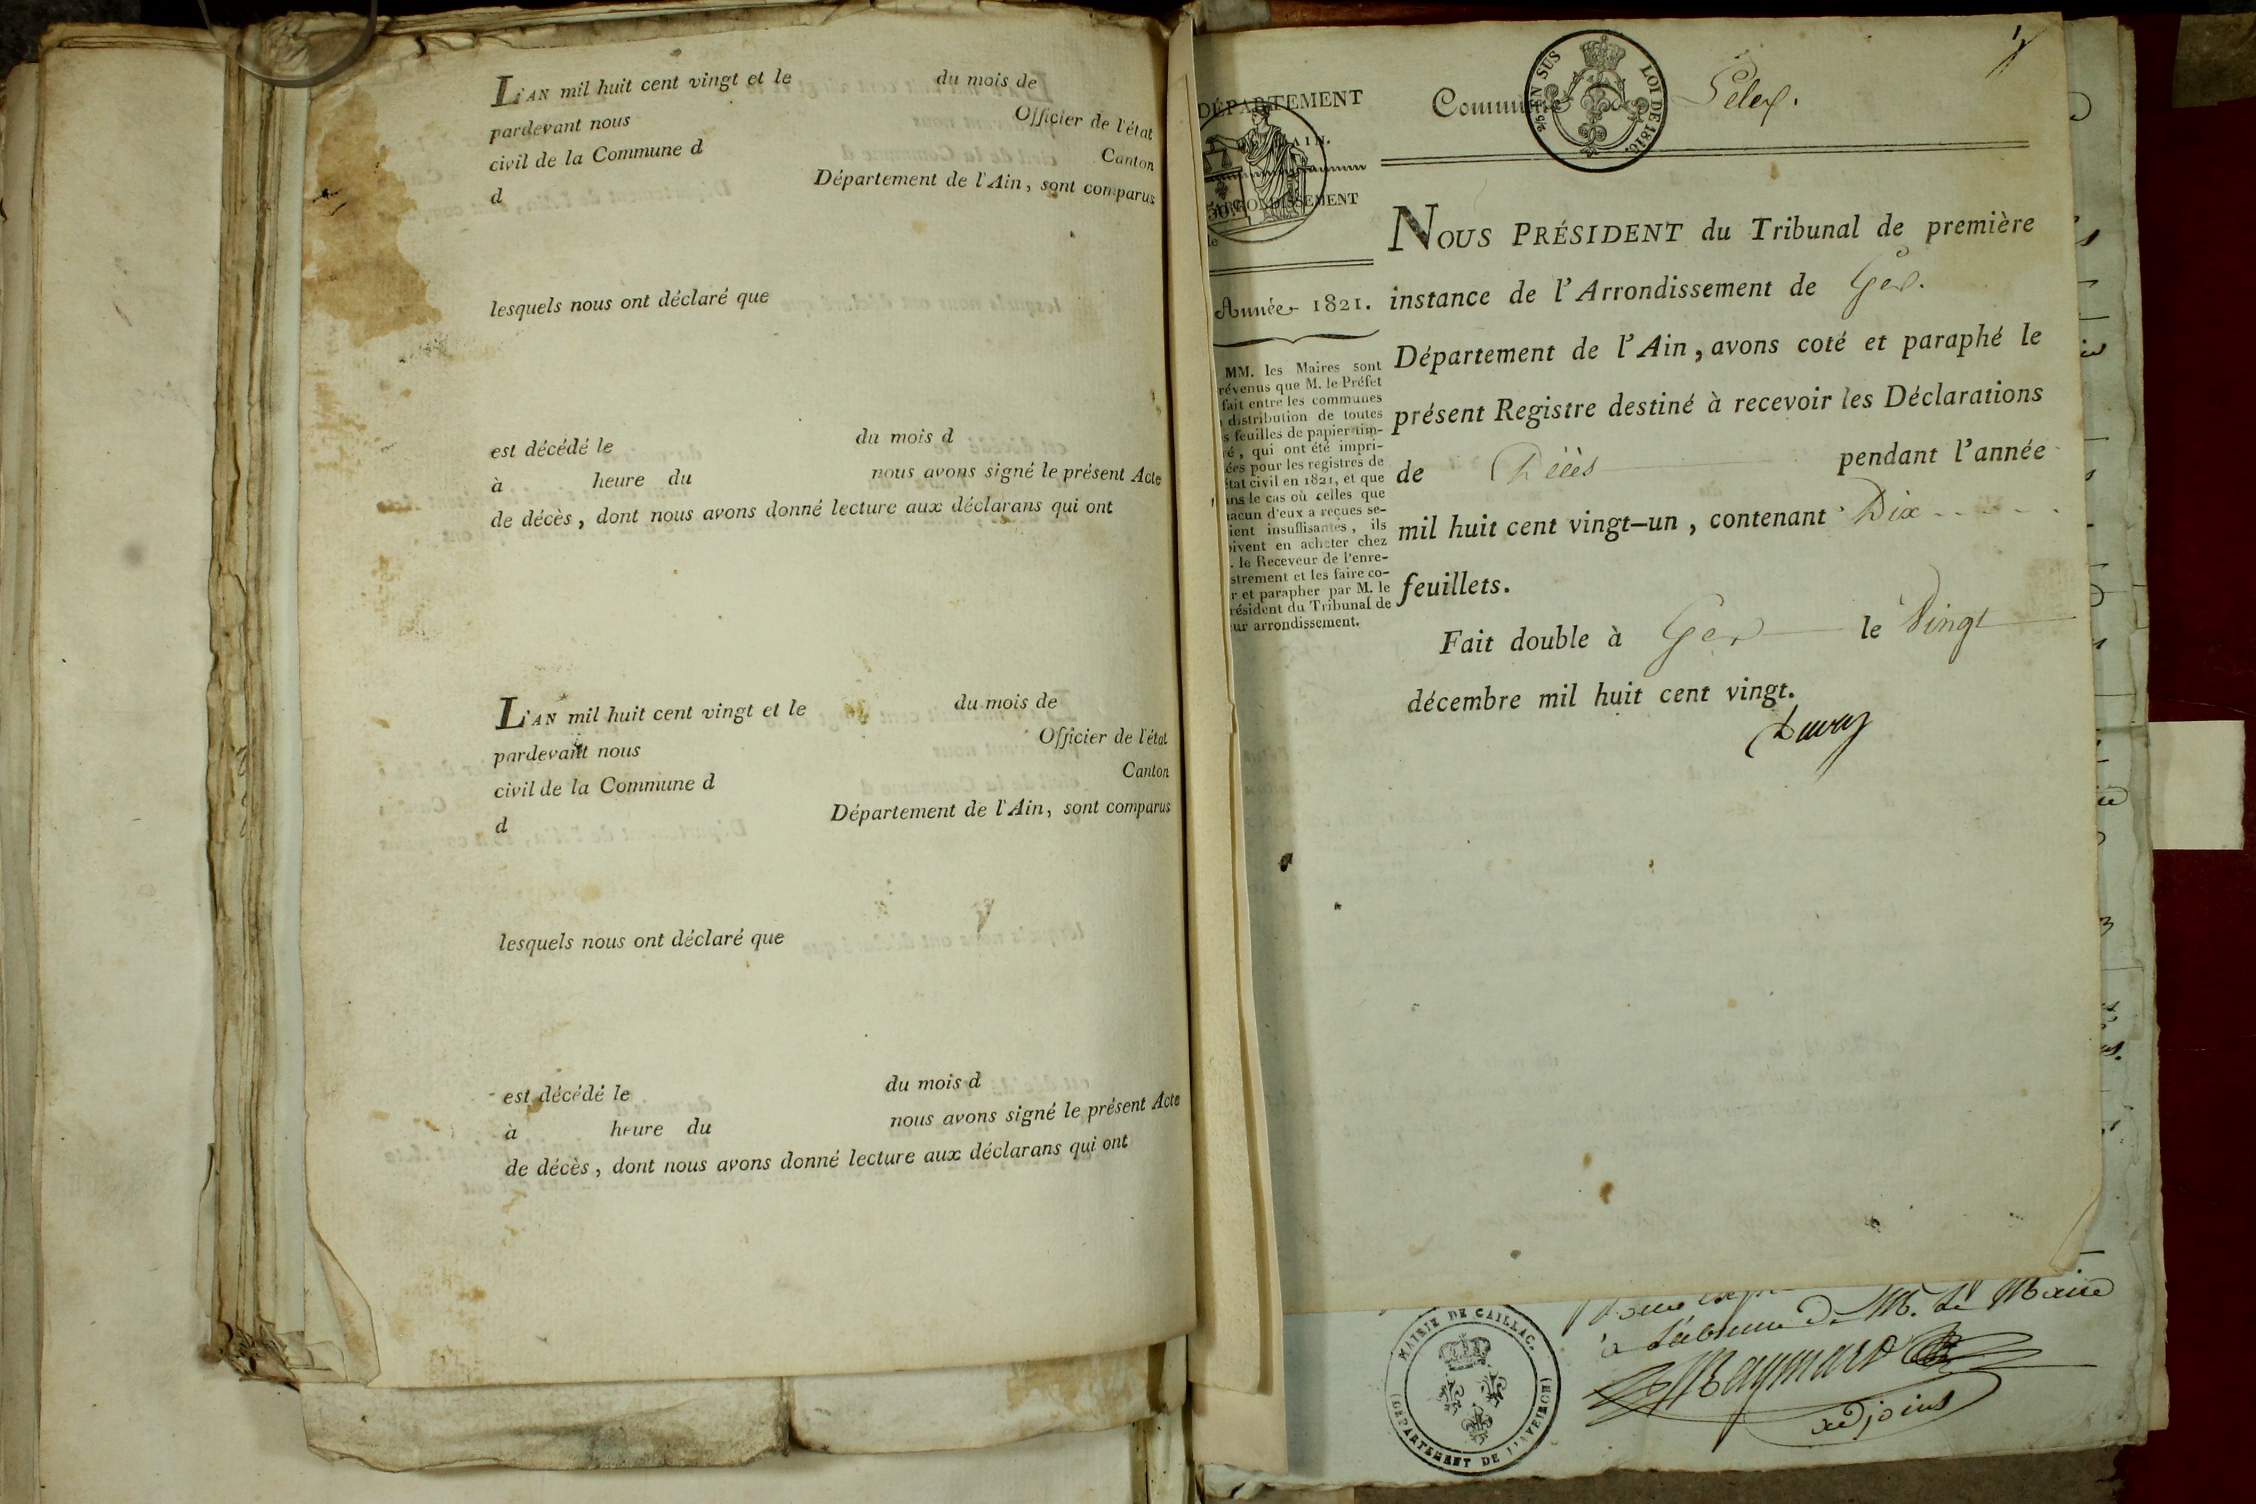 L'AN mil huit cent vingt et le du mois de
pardevant nous Officier de l'état
civil de la Commune d Canton
d Département de l'Ain, sont comparus
lesquels nous ont déclaré que
est décédé le du mois d
à heure du nous avons signé le présent Acte
de décès, dont nous avons donné lecture aux déclarans qui ont
L'AN mil huit cent vingt et le du mois de
pardevant nous Officier de l'état
civil de la Commune d Canton
d Département de l'Ain, sont comparus
lesquels nous ont déclaré que
est décédé le du mois d
à heure du nous avons signé le présent Acte
de décès, dont nous avons donné lecture aux déclarans qui ont
DÉPARTEMENT
AIN.
ARRONDISSEMENT
Année 1821.
MM. les Maires sont
révenus que M. le Préfet
fait entre les communes
distribution de toutes
s feuilles de papier tim-
é, qui ont été impri-
ées pour les registres de
état civil en 1821, et que
ans le cas où celles que
hacun d'eux a reçues se-
ient insuffisantes, ils
oivent en acheter chez
. le Receveur de l'enre-
strement et les faire co-
r et parapher par M. le
résident du Tribunal de
ur arrondissement.
EN SUS LOI DE 1816.
Commune Lelex.
NOUS PRÉSIDENT du Tribunal de première
instance de l'Arrondissement de Gex.
Département de l'Ain, avons coté et paraphé le
présent Registre destiné à recevoir les Déclarations
de Décès pendant l'année
mil huit cent vingt-un, contenant Dix
feuillets.
Fait double à Gex le Vingt
décembre mil huit cent vingt.
MAIRIE DE CAILLAC.
(DÉPARTEMENT DE L'AVEIRON)
M. le Maire
Raymard
adjoint